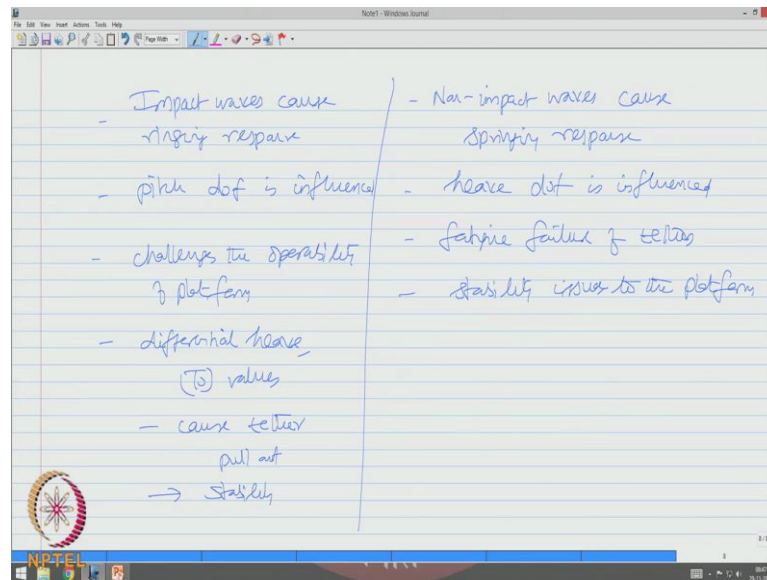 Note1 - Windows Journal
File Edit View Insert Actions Tools Help
Page Width
Impact waves cause
ringing response
- pitch dof is influenced
- challenges the operability
of platform
- differential heave
(To) values
- cause tether
pull out
→ stability
- Non-impact waves cause
springing response
- heave dof is influenced
- fatigue failure of tethers
- stability issues to the platform
NPTEL